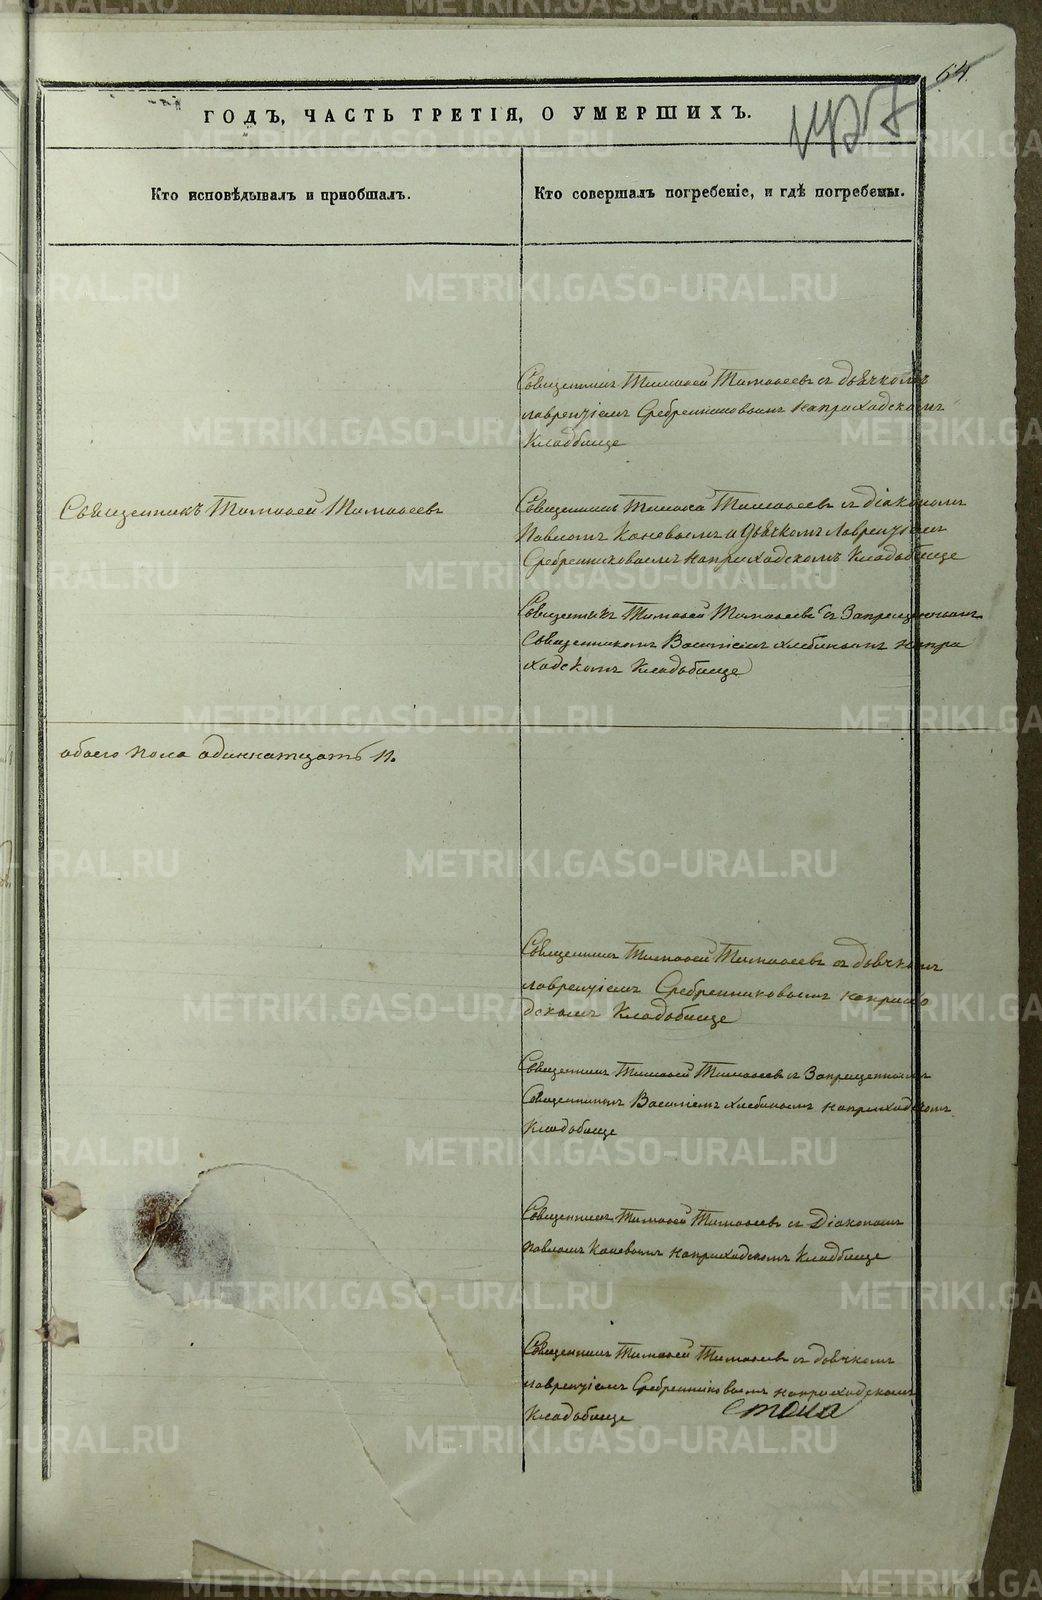 64.
ГОДЪ, ЧАСТЬ ТРЕТІЯ, О УМЕРШИХЪ.
Кто исповѣдывалъ и пріобщалъ.
Кто совершалъ погребеніе, и гдѣ погребены.
Священникъ Тимофей Тимофеевъ съ дьячкомъ
Лаврентіемъ Сребренниковымъ на приходскомъ
Кладбище
Священникъ Тимофей Тимофеевъ
Священникъ Тимофей Тимофеевъ съ діакономъ
Павломъ Каневымъ и дьячкомъ Лаврентіемъ
Сребренниковымъ на приходскомъ Кладбище
Священникъ Тимофей Тимофеевъ съ Запрещеннымъ
Священникомъ Василіемъ Хлебинымъ на при
ходскомъ Кладбище
обоего пола одиннатцать 11.
Священникъ Тимофей Тимофеевъ съ дьячкомъ
Лаврентіемъ Сребренниковымъ на прихо
дскомъ Кладбище
Священникъ Тимофей Тимофеевъ съ Запрещеннымъ
Священникомъ Василіемъ Хлебинымъ на приходскомъ
Кладбище
Священникъ Тимофей Тимофеевъ съ Діакономъ
Павломъ Каневымъ на приходскомъ Кладбище
Священникъ Тимофей Тимофеевъ съ дьячкомъ
Лаврентіемъ Сребренниковымъ на приходскомъ
Кладбище
METRIKI.GASO-URAL.RU